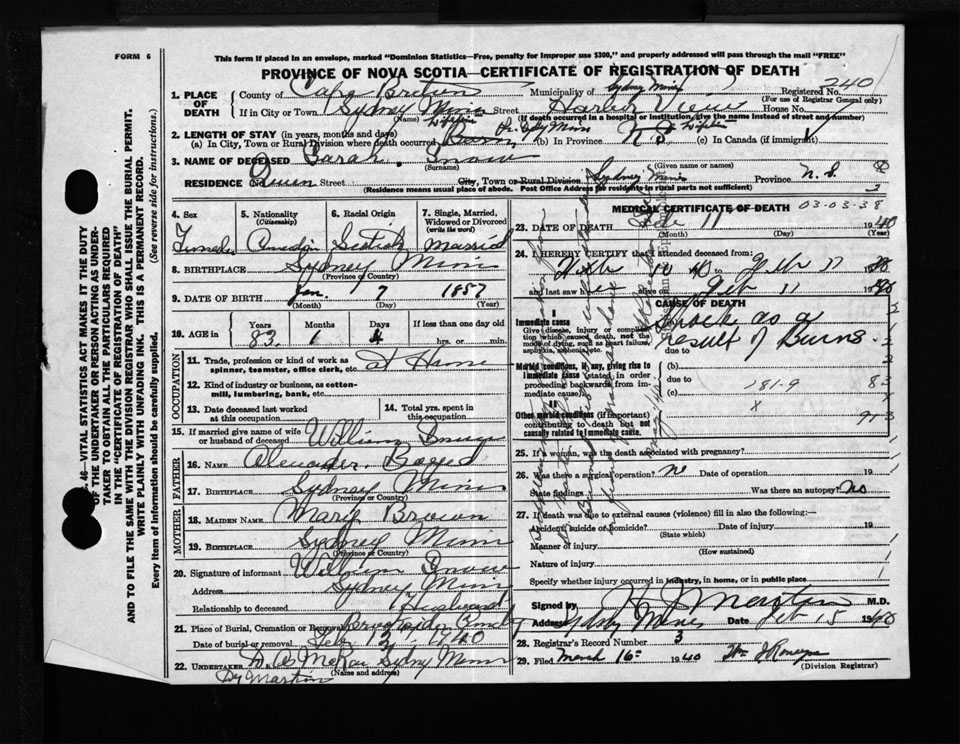 FORM 6
This form if placed in an envelope, marked "Dominion Statistics—Free, penalty for improper use $300," and properly addressed will pass through the mail "FREE"
PROVINCE OF NOVA SCOTIA—CERTIFICATE OF REGISTRATION OF DEATH
1. PLACE OF DEATH
County of Cape Breton Municipality of Sydney Mines Registered No. 240
(For use of Registrar General only)
If in City or Town Sydney Mines Street Harbor View House No.
(Name) (If death occurred in a hospital or institution, give the name instead of street and number)
2. LENGTH OF STAY (in years, months and days)
(a) In City, Town or Rural Division where death occurred Born (b) In Province N S (c) In Canada (if immigrant)
3. NAME OF DECEASED Sarah Snow
(Surname) (Given name or names)
RESIDENCE Queen Street City, Town or Rural Division Sydney Mines Province N. S.
(Residence means usual place of abode. Post Office Address for residents in rural parts not sufficient)
4. Sex Female
5. Nationality (Citizenship) Canadian
6. Racial Origin Scotch
7. Single, Married, Widowed or Divorced (write the word) Married
8. BIRTHPLACE Sydney Mines
(Province or Country)
9. DATE OF BIRTH Jan. 7 1857
(Month) (Day) (Year)
10. AGE in Years Months Days If less than one day old
83 1 4 hrs. or min.
OCCUPATION
11. Trade, profession or kind of work as spinner, teamster, office clerk, etc. at Home
12. Kind of industry or business, as cotton-mill, lumbering, bank, etc.
13. Date deceased last worked at this occupation
14. Total yrs. spent in this occupation
15. If married give name of wife or husband of deceased William Snow
FATHER
16. Name Alexander
17. Birthplace Sydney Mines
(Province or Country)
MOTHER
18. Maiden Name Mary Brown
19. Birthplace Sydney Mines
(Province or Country)
20. Signature of informant William Snow
Address Sydney Mines
Relationship to deceased Husband
21. Place of Burial, Cremation or Removal
Date of burial or removal Feb 1940
22. Undertaker Sydney Mines
(Name and address)
Martin
MEDICAL CERTIFICATE OF DEATH 03-03-38
23. DATE OF DEATH 11 1940
(Month) (Day) (Year)
24. I HEREBY CERTIFY that I attended deceased from:
and last saw h alive on Feb 11 1940
CAUSE OF DEATH
I
Immediate cause
Give disease, injury or complication which caused death, not the mode of dying, such as heart failure, asphyxia, asthenia, etc.
Shock as a
result of Burns.
due to
Morbid conditions, if any, giving rise to immediate cause (stated in order proceeding backwards from immediate cause).
(b)
due to 181-9
(c)
II
Other morbid conditions (if important) contributing to death but not causally related to immediate cause.
x
25. If a woman, was the death associated with pregnancy?
26. Was there a surgical operation? no Date of operation 19
State findings Was there an autopsy? no
27. If death was due to external causes (violence) fill in also the following:—
Accident, suicide or homicide? Date of injury 19
(State which)
Manner of injury
(How sustained)
Nature of injury
Specify whether injury occurred in industry, in home, or in public place
Signed by Martin M.D.
Address Sydney Mines Date Feb 15 1940
28. Registrar's Record Number 3
29. Filed March 16 1940
(Division Registrar)
46—VITAL STATISTICS ACT MAKES IT THE DUTY
OF THE UNDERTAKER OR PERSON ACTING AS UNDERTAKER TO OBTAIN ALL THE PARTICULARS REQUIRED
IN THE "CERTIFICATE OF REGISTRATION OF DEATH"
AND TO FILE THE SAME WITH THE DIVISION REGISTRAR WHO SHALL ISSUE THE BURIAL PERMIT.
WRITE PLAINLY WITH UNFADING INK. THIS IS A PERMANENT RECORD.
Every item of information should be carefully supplied. (See reverse side for instructions.)